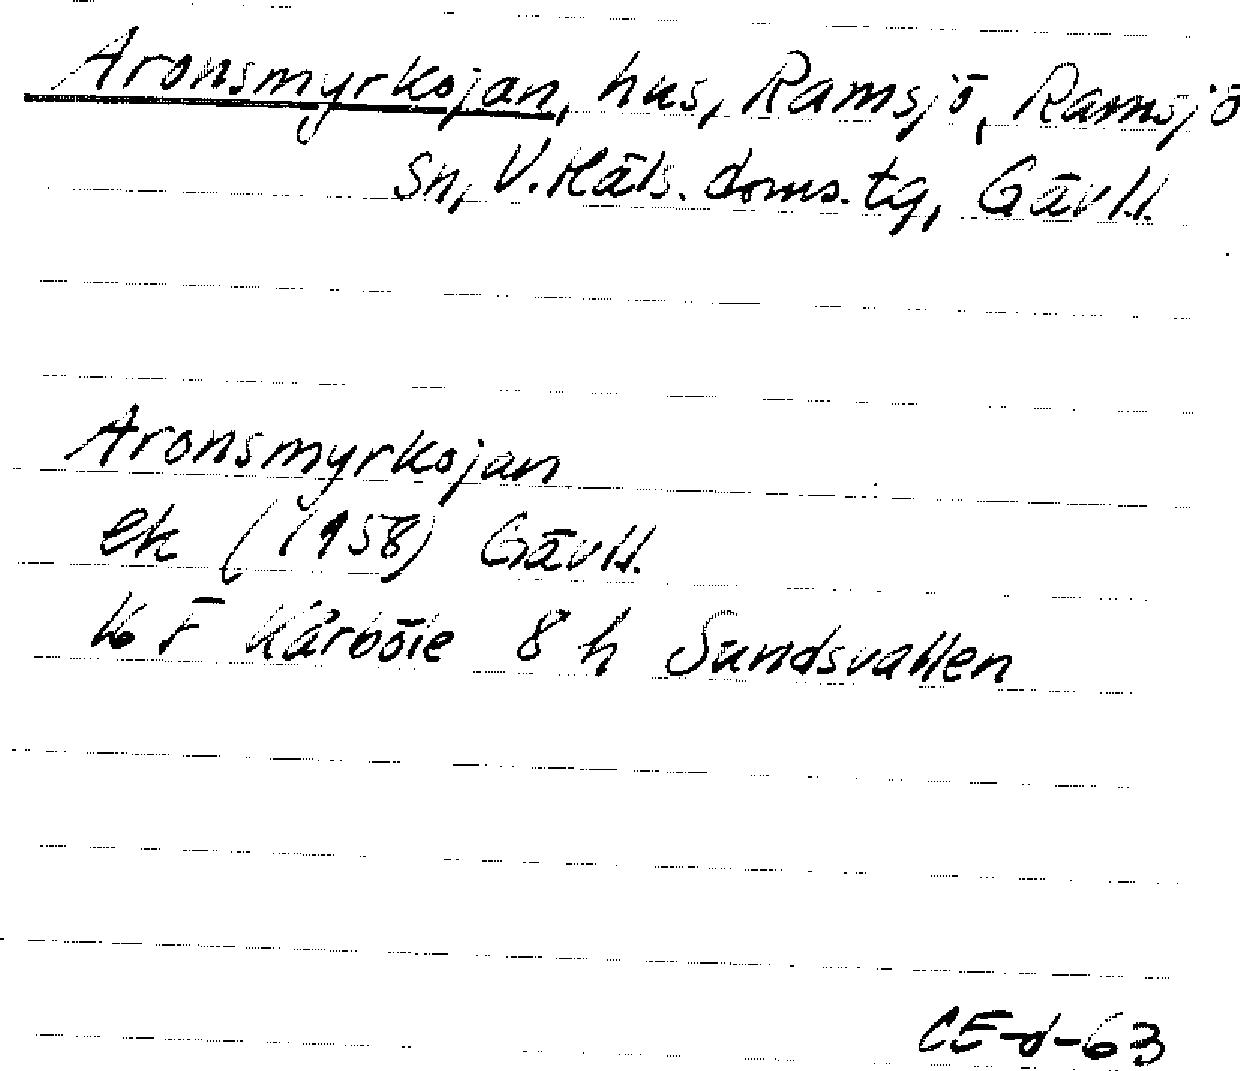 Aronsmyrkojan, hus, Ramsjö, Ramsjö
sn, V.Häls. doms.tg, Gävl.l.
Aronsmyrkojan
ek (1958) Gävl.l.
Kårböle 8 h Sundsvallen
CE-d-63